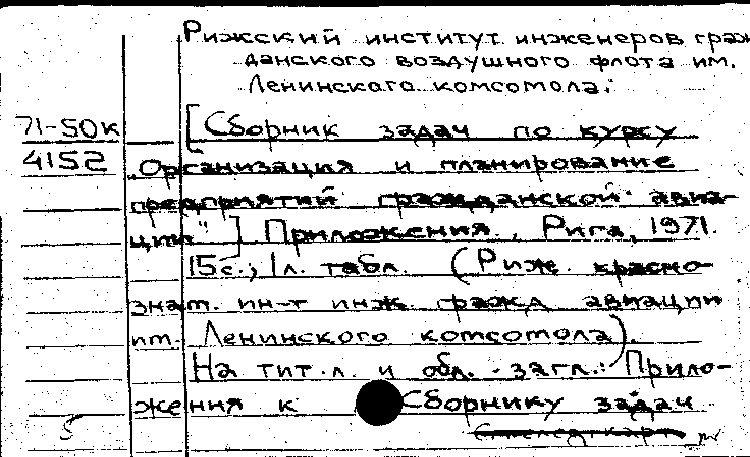 Рижский институт инженеров граж
данского воздушного флота им.
Ленинского комсомола.
71-50к
[Сборник задач по курсу
4152
„Организация и планирование
предприятий гражданской авиа-
ции"] Приложения., Рига, 1971.
15с.; 1л. табл. (Риж. красно-
знат. ин-т инж. гражд авиации
им. Ленинского комсомола).
На тит.л. и обл. - загл.: Прило-
жения к Сборнику задач
5